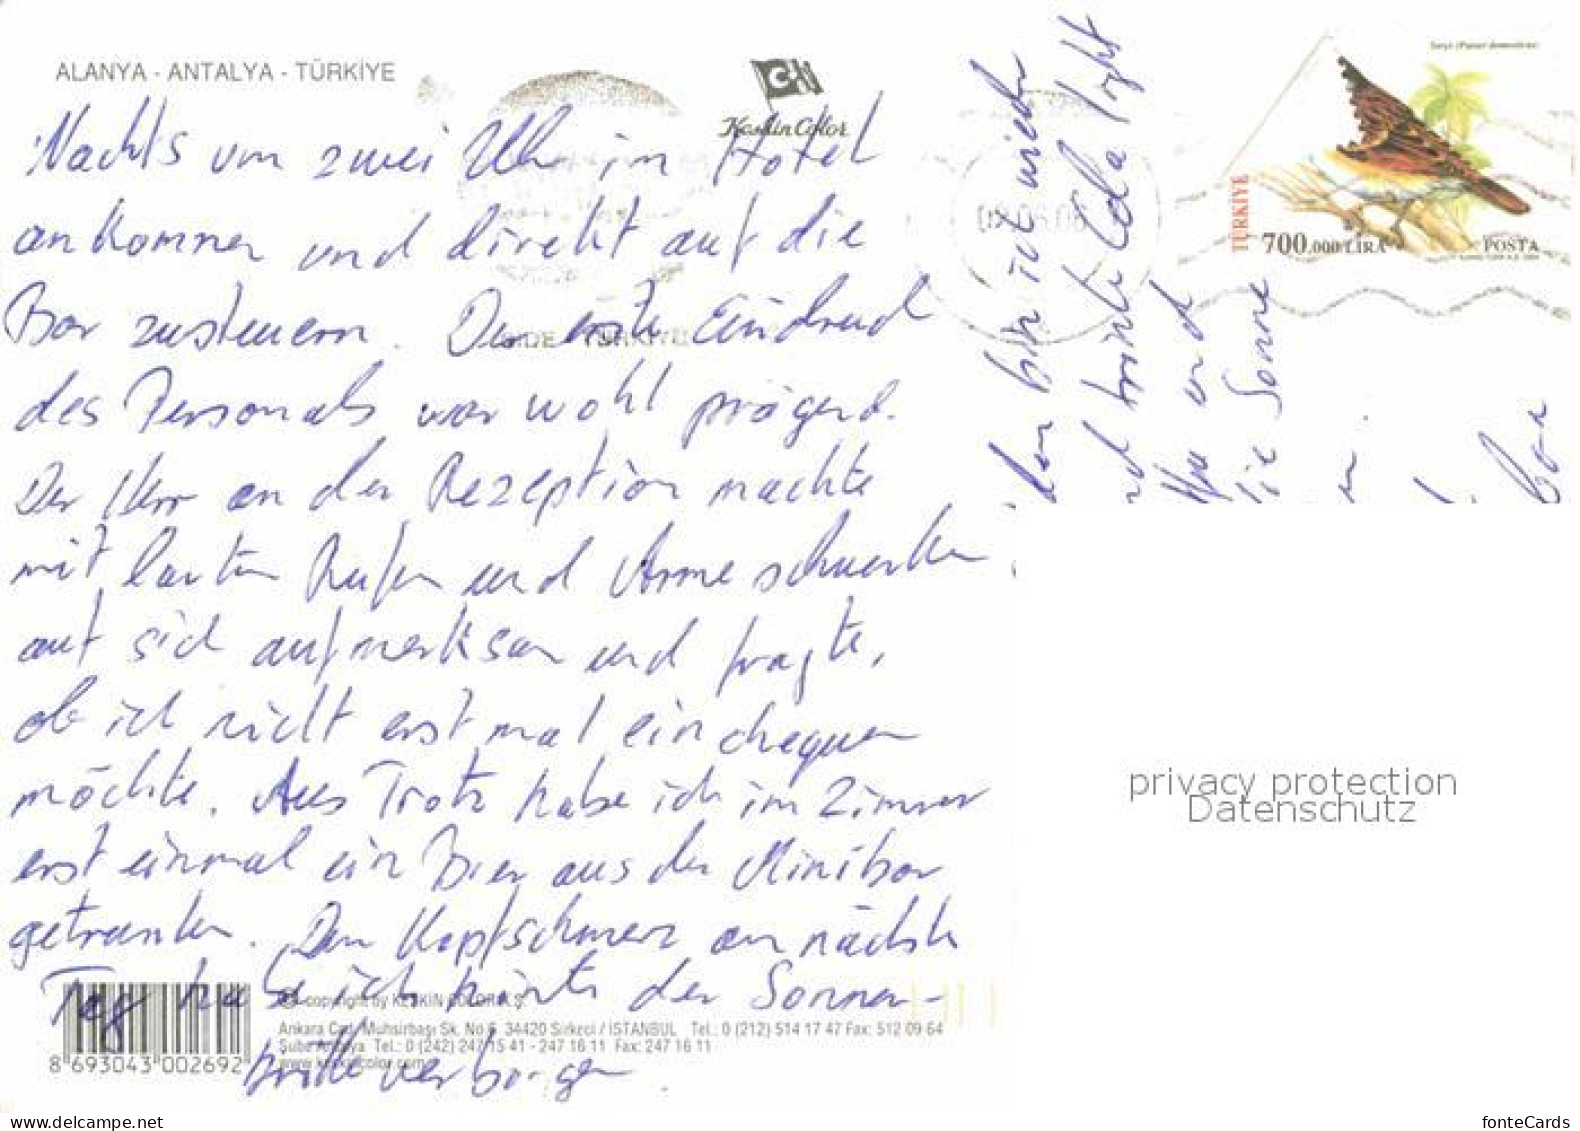 ALANYA - ANTALYA - TÜRKİYE
Keskin Color
Nachts um zwei Uhr im Hotel
ankommen und direkt auf die
Bar zusteuern. Der erste Eindruck
des Personals war wohl prägend.
Der Herr an der Rezeption machte
mit lauten Rufen und Arme schwenken
auf sich aufmerksam und fragte,
ob ich nicht erst mal einchequen
möchte. Aus Trotz habe ich im Zimmer
erst einmal ein Bier aus der Minibar
getrunken. Den Kopfschmerz am nächsten
Tag habe ich hinter der Sonnen-
brille verborgen.
bin ich wieder
trinke Cola light
und
die Sonne
TÜRKİYE
700.000 LİRA
POSTA
SIDE TÜRKİYE
copyright by KESKİN COLOR A.Ş.
Ankara Cad. Muhsirbaşı Sk. No 6, 34420 Sirkeci / İSTANBUL Tel.: 0 (212) 514 17 47 Fax: 512 09 64
Şube Antalya Tel.: 0 (242) 247 15 41 - 247 16 11 Fax: 247 16 11
www.keskincolor.com
8 693043 002692
privacy protection
Datenschutz
delcampe.net
fonteCards